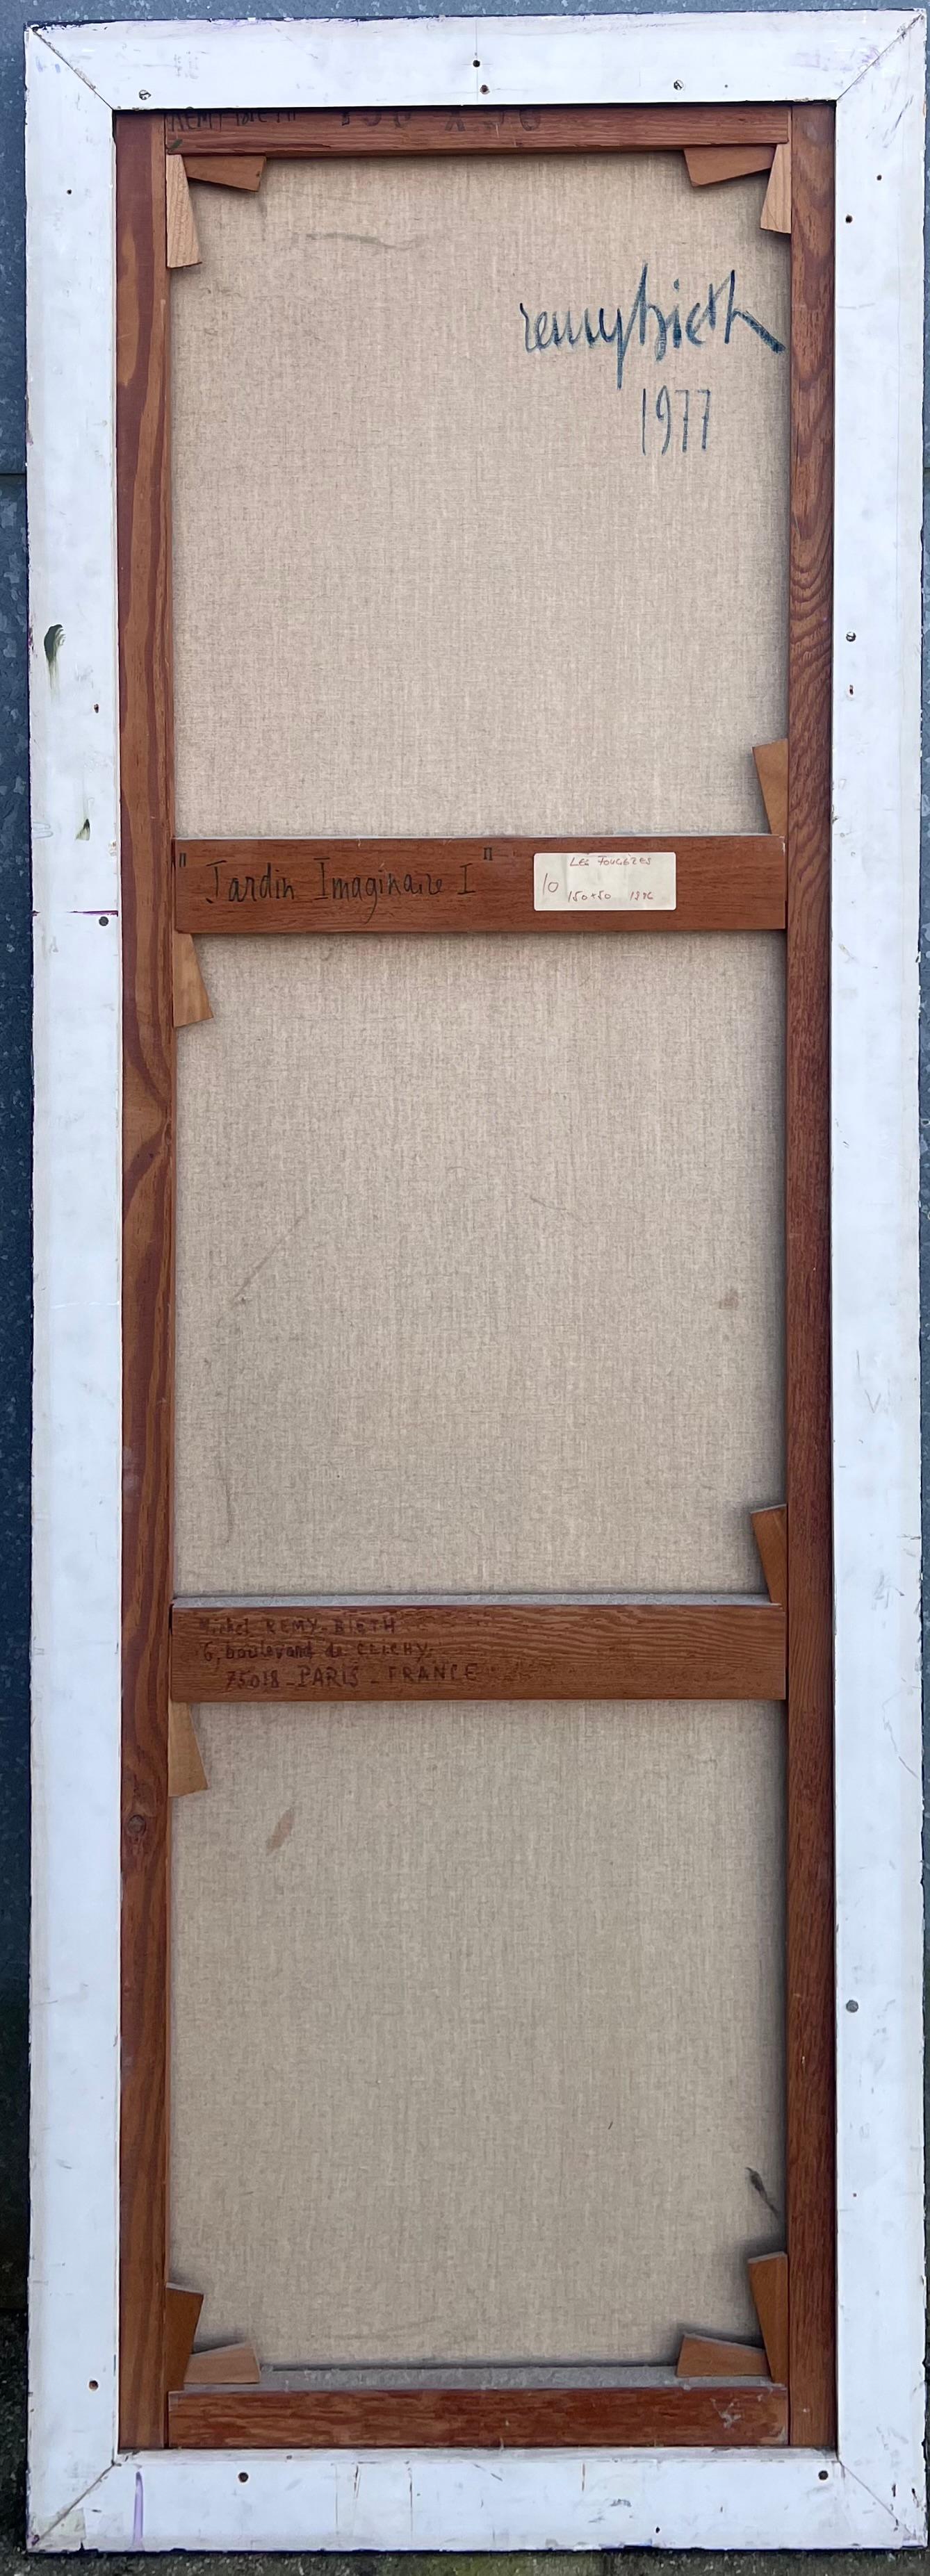 150 x 50
remy bieth
1977
"Jardin Imaginaire I"
LES FOUGERES
10
150×50
Michel REMY-BIETH
6, boulevard de CLICHY.
75018 - PARIS - FRANCE